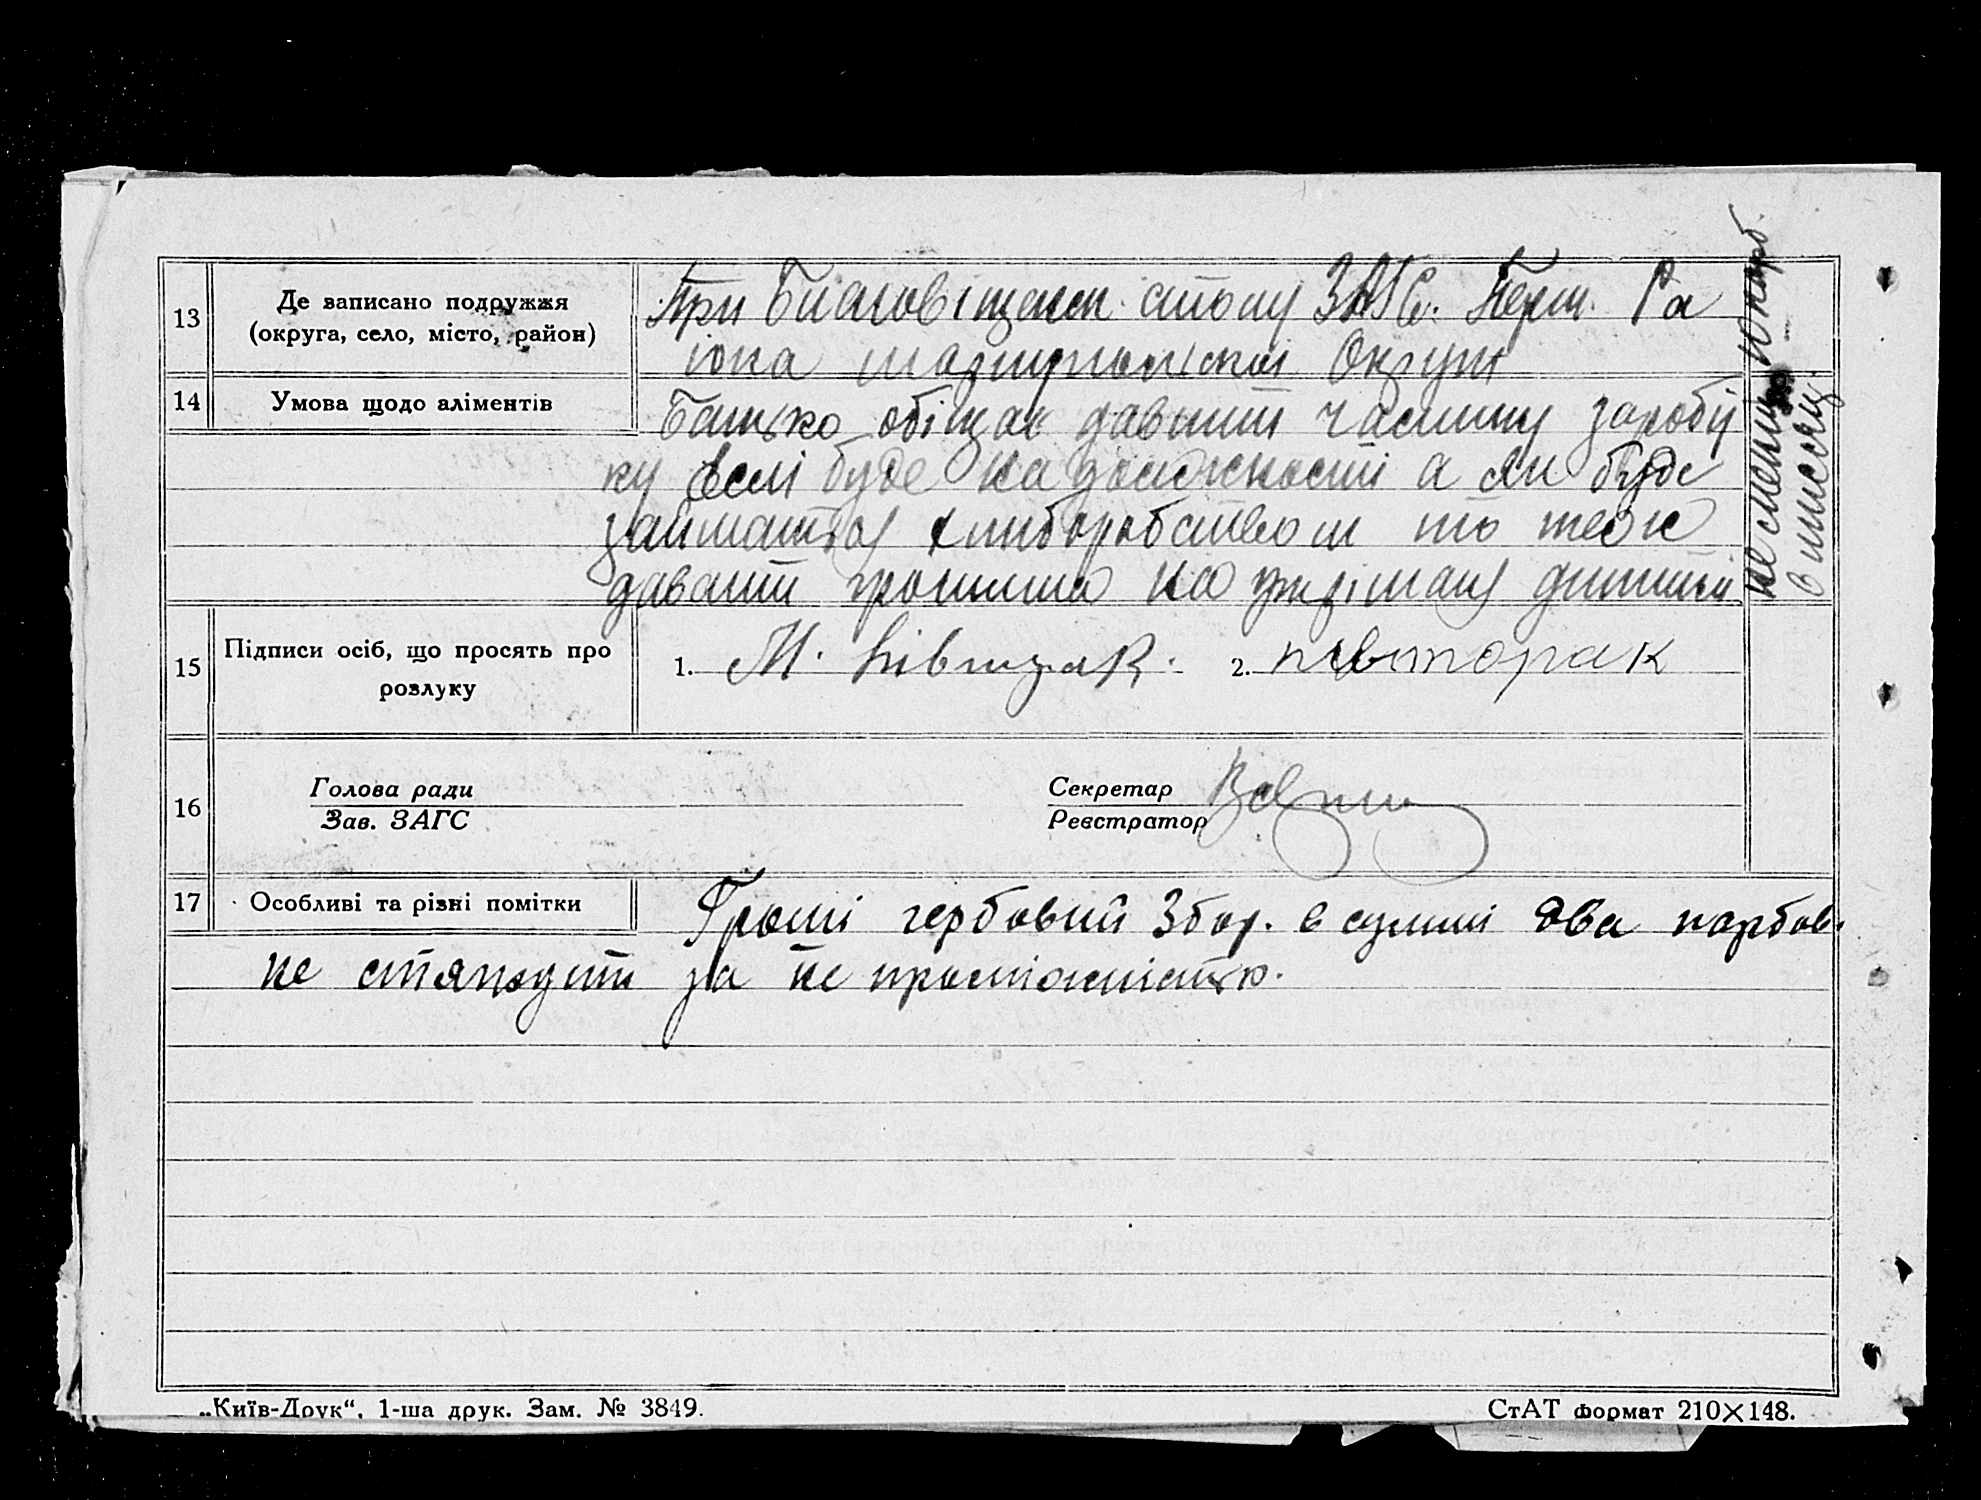 13
Де записано подружжя
(округа, село, місто, район)
При Благовіщенск. столу ЗАГС. Перш. Ра
іона Маріупольскої Округи
14
Умова щодо аліментів
Батько обіщає давати частину заробі
ку єслі буде на должності а як буде
займатся хліборобством то теж
давати грошима на удержіманя дитині
не менш 10 карб.
в місяць.
15
Підписи осіб, що просять про
розлуку
1. М. Півторак. 2. півторак
16
Голова ради
Зав. ЗАГС
Секретар
Реєстратор
17
Особливі та різні помітки
Гроші гербовий Збор. в суммі два карбов.
не стягнути за не
„Київ-Друк“, 1-ша друк. Зам. № 3849.
СтАТ формат 210×148.